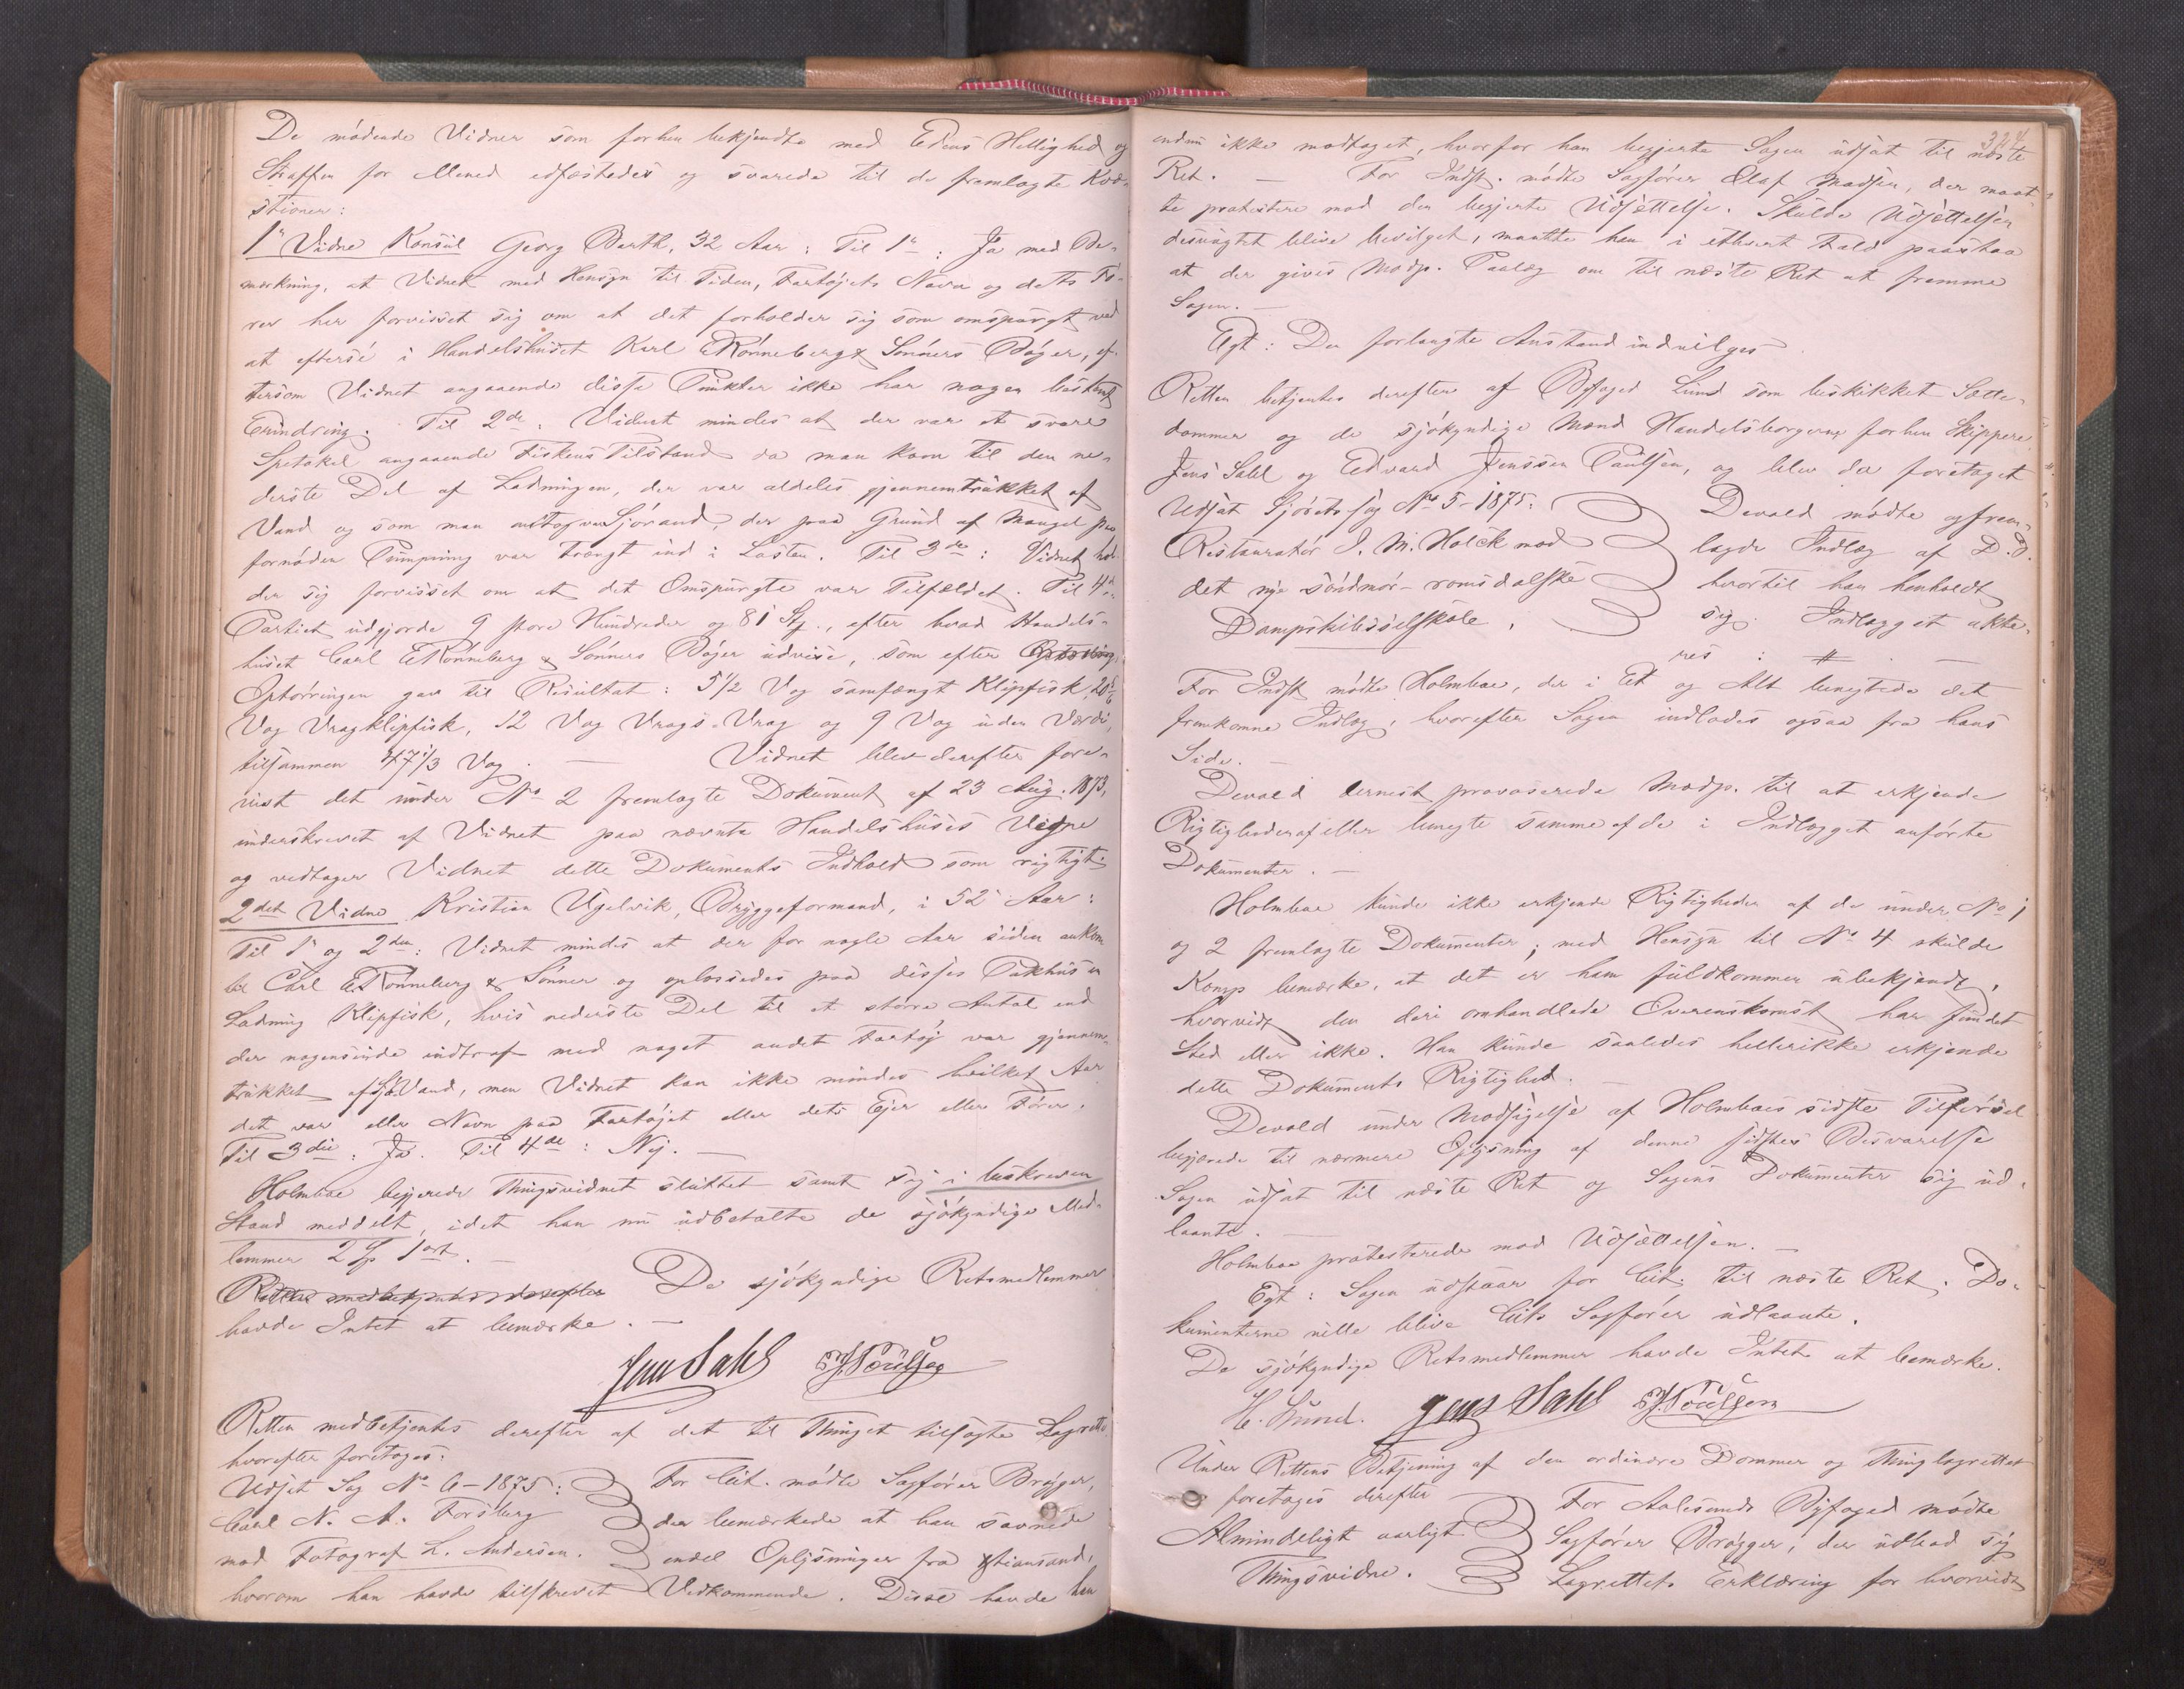 De mødende Vidner som forhen bekjendte med Edens Hellighed og
Straffen for Mened edfæstedes og svarede til de fremlagte Kvæ-
stioner:
1ste Vidne Konsul Georg Barth, 32 Aar: Til 1ste: Ja med Be-
mærkning, at Vidnet med Hensyn til Tiden, Fartøjets Navn og dets Fø-
rer har forvisset sig om at det forholder sig som omspurgt ved
at efterse i Handelshuset Karl E Rønneberg & Sønners Bøger, ef-
tersom Vidnet angaaende disse Punkter ikke har nogen bestemt
Erindring. Til 2de: Vidnet mindes at der var et svare
Spetakel angaaende Fiskens Tilstand da man kom til den ne-
derste Del af Ladningen, der var aldeles gjennemtrukket af
Vand og som man antog var Sjøvand, der paa Grund af Mangel paa
fornøden Pumpning var trængt ind i Lasten. Til 3de: Vidnet hol-
der sig forvisset om at det Omspurgte var Tilfældet. Til 4de:
Partiet udgjorde 9 store Hundreder og 81 Stk., efter hvad Handels-
huset Carl E Rønneberg & Sønners Bøger udvise, som efter
Optørringen gav til Resultat: 5 1/2 Vog samfængt Klipfisk, 20 5/6
Vog Vragklipfisk, 12 Vog Vrags-Vrag og 9 Vog uden Værdi,
tilsammen 47 1/3 Vog. — Vidnet blev derefter fore-
vist det under No 2 fremlagte Dokument af 23 Aug. 1873,
underskrevet af Vidnet paa nævnte Handelshuses Vegne
og vedtager Vidnet dette Dokuments Indhold som rigtigt.
2det Vidne Kristian Ugelvik, Bryggeformand, i 52 Aar:
Til 1ste og 2den: Vidnet mindes at der for nogle Aar siden ankom
til Carl E Rønneberg & Sønner og oplossedes paa disses Pakhus en
Ladning Klipfisk, hvis nederste Del til et større Antal end
der nogensinde indtraf med noget andet Fartøj var gjennem-
trukket af Sjøvand, men Vidnet kan ikke mindes hvilket Aar
det var eller Navn paa Fartøjet eller dets Ejer eller Fører.
Til 3die: Ja. Til 4de: Nej. —
Holmboe begjerede Thingsvidnet sluttet samt sig i beskreven
Stand meddelt, idet han nu udbetalte de sjøkyndige Med-
lemmer 2 Sp 1 ort. —
De sjøkyndige Retsmedlemmer
havde Intet at bemærke. —
Jens Dahl EJPaulsen
Retten medbetjentes derefter af det til Thinget tilsagte Lagrette
hvorefter foretoges:
Udsat Sag No 6-1875: For Cit. mødte Sagfører Brøgger,
Carl N. A. Forsberg der bemærkede at han savnede
mod Fotograf L. Andersen. endel Oplysninger fra Xstiansand,
hvorom han havde tilskrevet Vedkommende. Disse havde han
324
endnu ikke modtaget, hvorfor han begjerte Sagen udsat til næste
Ret. — For Indst. mødte Sagfører Olaf Madsen, der maat-
te protestere mod den begjerte Udsættelse. Skulde Udsættelsen
desuagtet blive bevilget, maatte han i ethvert Fald paastaa
at der gives Modp. Paalæg om til næste Ret at fremme
Sagen. —
Egt: Den forlangte Anstand indvilges.
Retten betjentes derefter af Byfoged Lund som beskikket Sætte-
dommer og de sjøkyndige Mænd Handelsborgerne forhen Skippere
Jens Dahl og Edvard Jenssen Paulsen, og blev da foretaget
Udsat Sjørets Sag No 5-1875: Devold mødte og frem-
Restauratør J. M. Holck mod lagde Indlæg af D.D.
det nye søndmør-romsdalske hvortil han henholdt
Dampskibsselskab. sig. Indlægget akte-
res: # . —
For Indst mødte Holmboe, der i Et og Alt benegtede det
fremkomne Indlæg, hvorefter Sagen indlodes ogsaa fra hans
Side. —
Devold dernæst provoserede Modp. til at erkjende
Rigtigheden af eller benegte samme af de i Indlægget anførte
Dokumenter. —
Holmboe kunde ikke erkjende Rigtigheden af de under No 1
og 2 fremlagte Dokumenter; med Hensyn til No 4 skulde
Komp bemærke, at det er ham fuldkommen ubekjendt,
hvorvidt den deri omhandlede Overenskomst har fundet
Sted eller ikke. Han kunde saaledes heller ikke erkjende
dette Dokuments Rigtighed. —
Devold under Modsigelse af Holmboes sidste Tilførsel
begjærede til nærmere Oplysning af dennes sidste Besvarelse
Sagen udsat til næste Ret og Sagens Dokumenter sig ud-
laante. —
Holmboe protesterede mod Udsættelsen. —
Egt: Sagen udstaar for Cit. til næste Ret. Do-
kumenterne ville blive Cits Sagfører udlaante.
De sjøkyndige Retsmedlemmer havde Intet at bemærke.
H. Lund. Jens Dahl EJPaulsen
Under Rettens Betjening af den ordinære Dommer og Thinglagrettet
foretoges derefter
Almindeligt aarligt For Aalesunds Byfoged mødte
Thingsvidne. Sagfører Brøgger, der udbad sig
Lagrettets Erklæring for hvorvidt